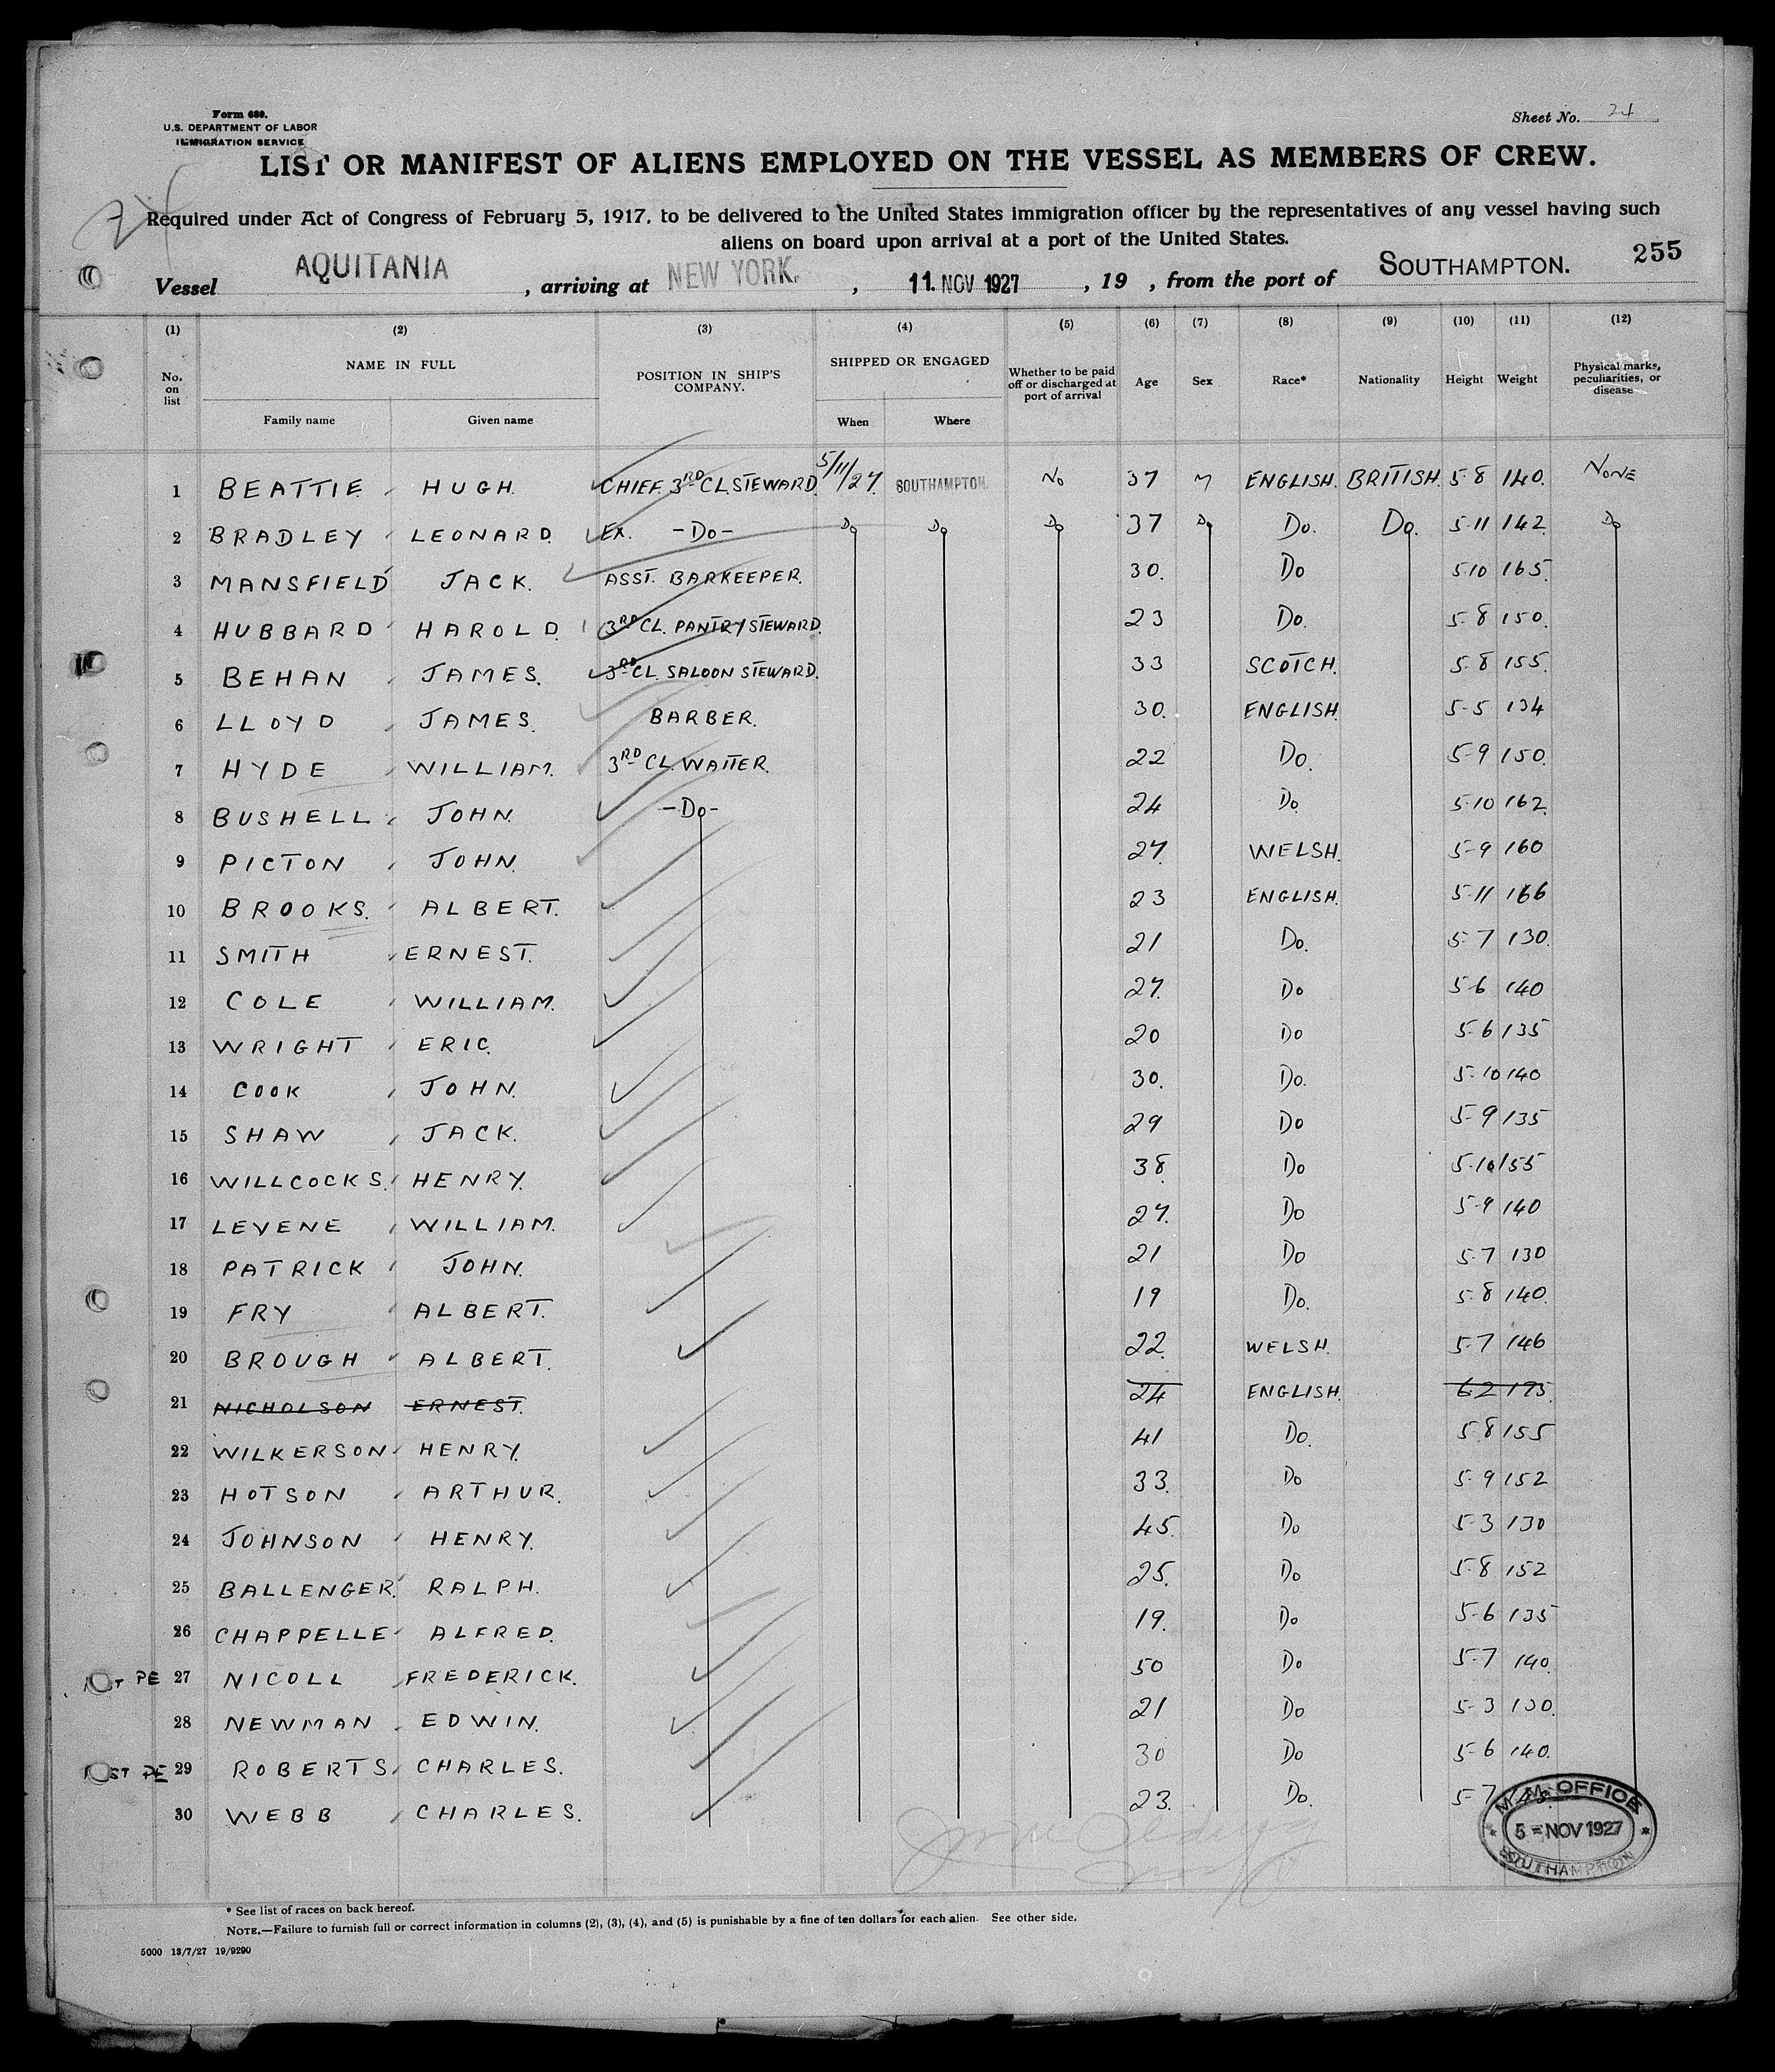 Form 680.
U.S. DEPARTMENT OF LABOR
IMMIGRATION SERVICE
Sheet No. 24
LIST OR MANIFEST OF ALIENS EMPLOYED ON THE VESSEL AS MEMBERS OF CREW.
Required under Act of Congress of February 5, 1917, to be delivered to the United States immigration officer by the representatives of any vessel having such
aliens on board upon arrival at a port of the United States.
255
Vessel AQUITANIA , arriving at NEW YORK. , 11. NOV 1927 , 19 , from the port of SOUTHAMPTON.
(1) (2) (3) (4) (5) (6) (7) (8) (9) (10) (11) (12)
No. on list NAME IN FULL Family name Given name POSITION IN SHIP'S COMPANY. SHIPPED OR ENGAGED When Where Whether to be paid off or discharged at port of arrival Age Sex Race* Nationality Height Weight Physical marks, peculiarities, or disease
1 BEATTIE HUGH. CHIEF 3RD CL STEWARD. 5/11/27. SOUTHAMPTON. No 37 M ENGLISH. BRITISH. 5-8 140. NONE
2 BRADLEY LEONARD. EX. -Do- Do Do Do 37 Do Do. Do. 5-11 142. Do
3 MANSFIELD JACK. ASST. BARKEEPER. 30. Do 5-10 165.
4 HUBBARD HAROLD. 3RD CL. PANTRY STEWARD. 23 Do. 5-8 150.
5 BEHAN JAMES. 3RD CL. SALOON STEWARD. 33 SCOTCH. 5-8 155.
6 LLOYD JAMES. BARBER. 30. ENGLISH. 5-5 134
7 HYDE WILLIAM. 3RD CL. WAITER. 22 Do. 5-9 150.
8 BUSHELL JOHN. -Do- 24 Do. 5-10 162.
9 PICTON JOHN. 27. WELSH. 5-9 160
10 BROOKS. ALBERT. 23 ENGLISH. 5-11 166
11 SMITH ERNEST. 21 Do. 5-7 130.
12 COLE WILLIAM. 27. Do 5-6 140
13 WRIGHT ERIC. 20 Do 5-6 135
14 COOK JOHN. 30. Do. 5-10 140
15 SHAW JACK. 29 Do 5-9 135
16 WILLCOCKS. HENRY. 38. Do 5-10 155
17 LEVENE WILLIAM. 27. Do 5-9 140
18 PATRICK JOHN. 21 Do 5-7 130
19 FRY ALBERT. 19 Do. 5-8 140.
20 BROUGH ALBERT. 22. WELSH. 5-7 146
21 NICHOLSON ERNEST. 24 ENGLISH. 62 195.
22 WILKERSON HENRY. 41 Do. 5-8 155
23 HOTSON ARTHUR. 33. Do 5-9 152
24 JOHNSON HENRY. 45. Do 5-3 130
25 BALLENGER. RALPH. 25. Do 5-8 152
26 CHAPPELLE ALFRED. 19. Do 5-6 135
PE 27 NICOLL FREDERICK. 50 Do 5-7 140.
28 NEWMAN EDWIN. 21 Do 5-3 130.
PE 29 ROBERTS. CHARLES. 30 Do 5-6 140.
30 WEBB CHARLES. 23. Do. 5-7
M.M. OFFICE
5 - NOV 1927
SOUTHAMPTON
* See list of races on back hereof.
NOTE.—Failure to furnish full or correct information in columns (2), (3), (4), and (5) is punishable by a fine of ten dollars for each alien. See other side.
5000 13/7/27 19/9290